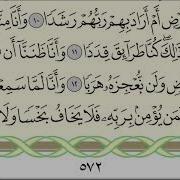 رْضِ أَمْ أَرَادَ بِهِمْ رَبُّهُمْ رَشَدًا ١٠ وَأَنَّا مِنَّ
ذَٰلِكَ كُنَّا طَرَآئِقَ قِدَدًا ١١ وَأَنَّا ظَنَنَّآ أَن
رْضِ وَلَن نُّعْجِزَهُۥ هَرَبًا ١٢ وَأَنَّا لَمَّا سَمِعْ
مَن يُؤْمِنۢ بِرَبِّهِۦ فَلَا يَخَافُ بَخْسًا وَلَا
٥٧٢